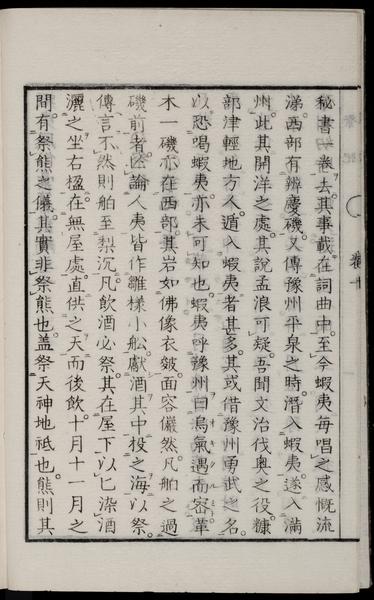 秘書卷去其事載在詞曲中至今蝦夷每唱之感慨流
涕西部有辨慶磯又傳豫州平泉之時潛入蝦夷遂入滿
州此其開洋之處其說孟浪可疑吾聞文治伐奧之役糠
部津輕地方人遁入蝦夷者甚多其或借豫州勇武之名
以恐喝蝦夷亦未可知也蝦夷呼豫州曰烏氣遇而容葦
木一磯亦在西部其岩如佛像衣皴面容儼然凡舶之過
磯前者論人夷皆作雛樣小舩獻酒其中投之海以祭
傳言不然則舶至梨沉凡飲酒必祭其在屋下以匕染酒
灑之坐右楹在無屋處直供之天而後飲十月十一月之
間有祭熊之儀其實非祭熊也蓋祭天神地祇也熊則其